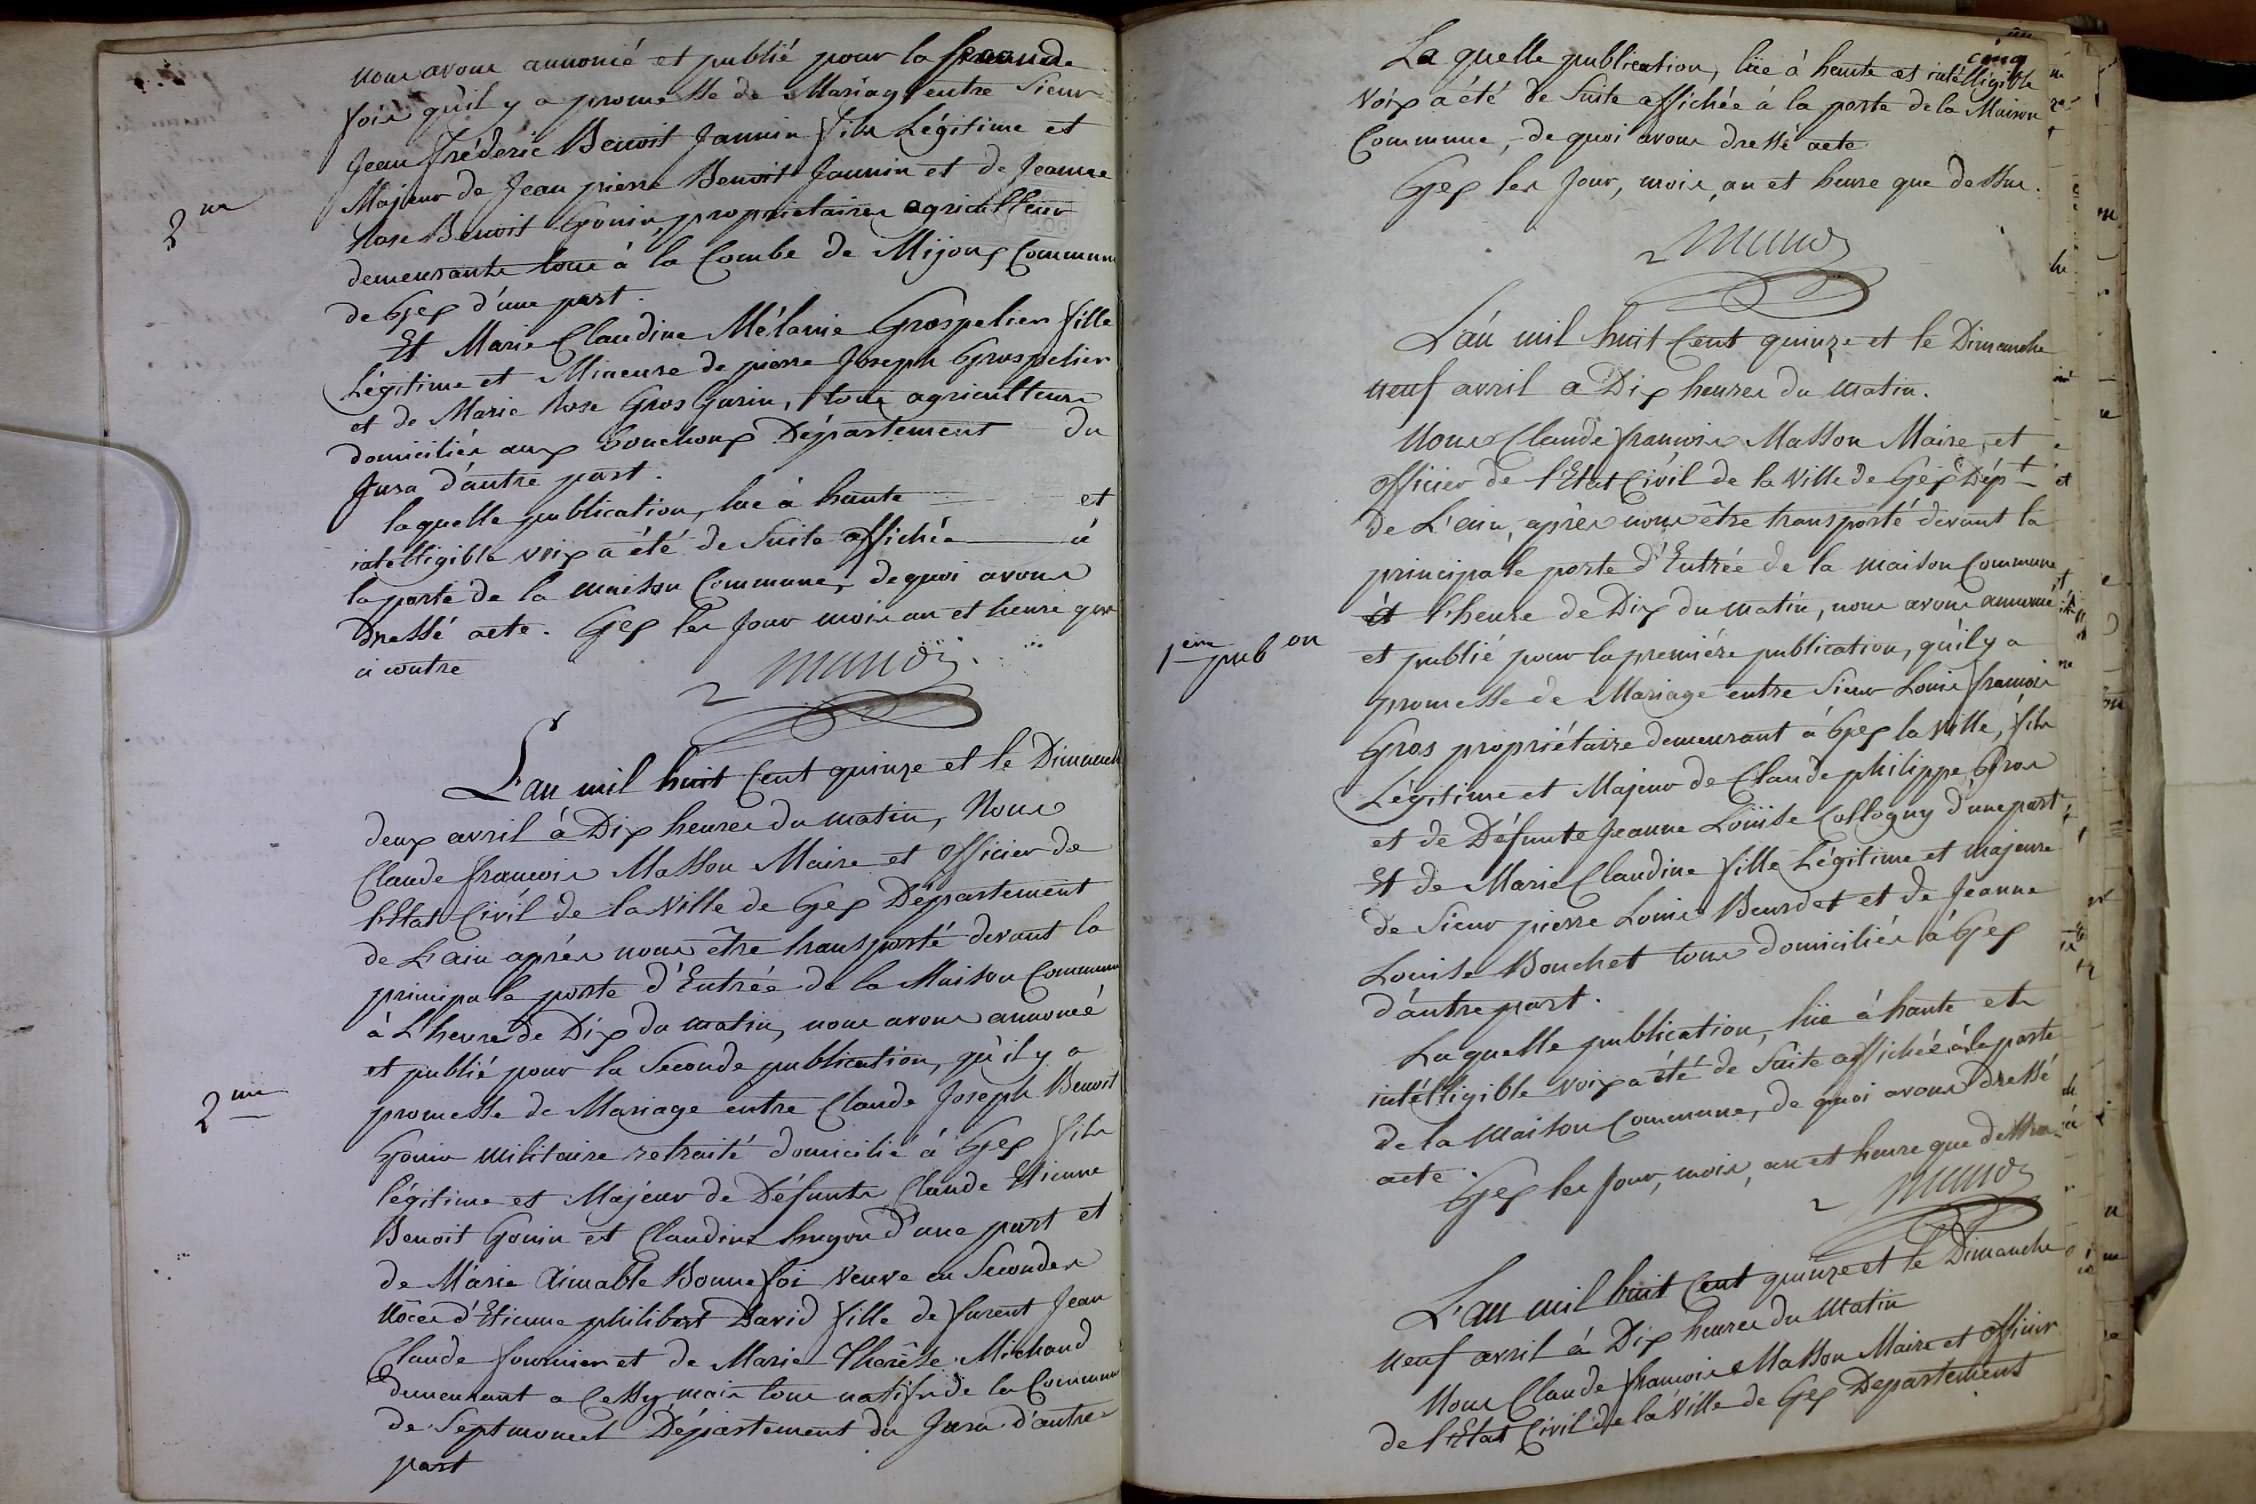 nous avons annoncé et publié pour la Seconde
fois qu'il y a promesse de Mariage entre Sieur
Jean frédéric Benoit Jannin fils Légitime et
Majeur de Jean pierre Benoit Jannin et de Jeanne
Rose Benoit Gonin, propriétaires agriculteur
demeurants tous à la Combe de Mijoux Commune
de Gex d'une part.
2me
Et Marie Claudine Mélanie Grospelier fille
Légitime et Mineure de pierre Joseph Grospelier
et de Marie Rose Gros Gurin, tous agriculteurs
domiciliés aux bouchoux Département du
Jura d'autre part.
laquelle publication, lue à haute et
intelligible voix a été de Suite affichée à
la porte de la maison Commune, de quoi avons
Dressé acte. Gex les Jour mois an et heure que
ci contre
L'an mil huit Cent quinze et le Dimanche
deux avril à Dix heures du matin, Nous
Claude françois Masson Maire et officier de
l'Etat Civil de la Ville de Gex Département
de L'ain après nous être transporté devant la
principale porte d'Entrée de la Maison Commune
à L'heure de Dix du matin, nous avons annoncé
et publié pour la Seconde publication, qu'il y a
2me
promesse de Mariage entre Claude Joseph Benoit
Gonin militaire retraité domicilié à Gex fils
légitime et Majeur de Défunts Claude Etienne
Benoit Gonin et Claudine hugon d'une part et
de Marie Aimable Bonnefoi Veuve en Secondes
Nôces d'Etienne philibert David fille de furent Jean
Claude fournier et de Marie Thérèse Michaud
demeurant a Cessy mais tous natifs de la Commune
de Septmoncel Département du Jura d'autre
part
cinq
La quelle publication, lüe à haute et intélligible
voix a été de Suite affichée à la porte de la Maison
Commune, de quoi avons dressé acte
Gex les Jour, mois, an et heure que dessus.
L'an mil huit Cent quinze et le Dimanche
neuf avril a Dix heures du matin.
Nous Claude françois Masson Maire, et
officier de l'Etat Civil de la Ville de Gex Dépt
de L'ain, après nous être transporté devant la
principale porte d'Entrée de la maison Commune
et l'heure de Dix du matin, nous avons annoncé
1ère pubon
et publié pour la première publication, qu'il y a
promesse de Mariage entre Sieur Louis françois
Gros propriétaire demeurant à Gex la Ville, fils
Légitime et Majeur de Claude philippe Gros
et de Défunte Jeanne Louise Collogny d'une part
Et de Marie Claudine fille Légitime et majeure
de Sieur pierre Louis Beurdet et de Jeanne
Louise Bouchet tous domiciliés à Gex
d'autre part.
Laquelle publication, lüe à haute et
intélligible voix a été de Suite affichée à la porte
de la Maison Commune, de quoi avons Dressé
acte. Gex les Jour, mois, an et heure que dessus
L'an mil huit Cent quinze et le Dimanche
neuf avril à Dix heures du Matin
Nous Claude françois Masson Maire et officier
de l'Etat Civil de la Ville de Gex Département